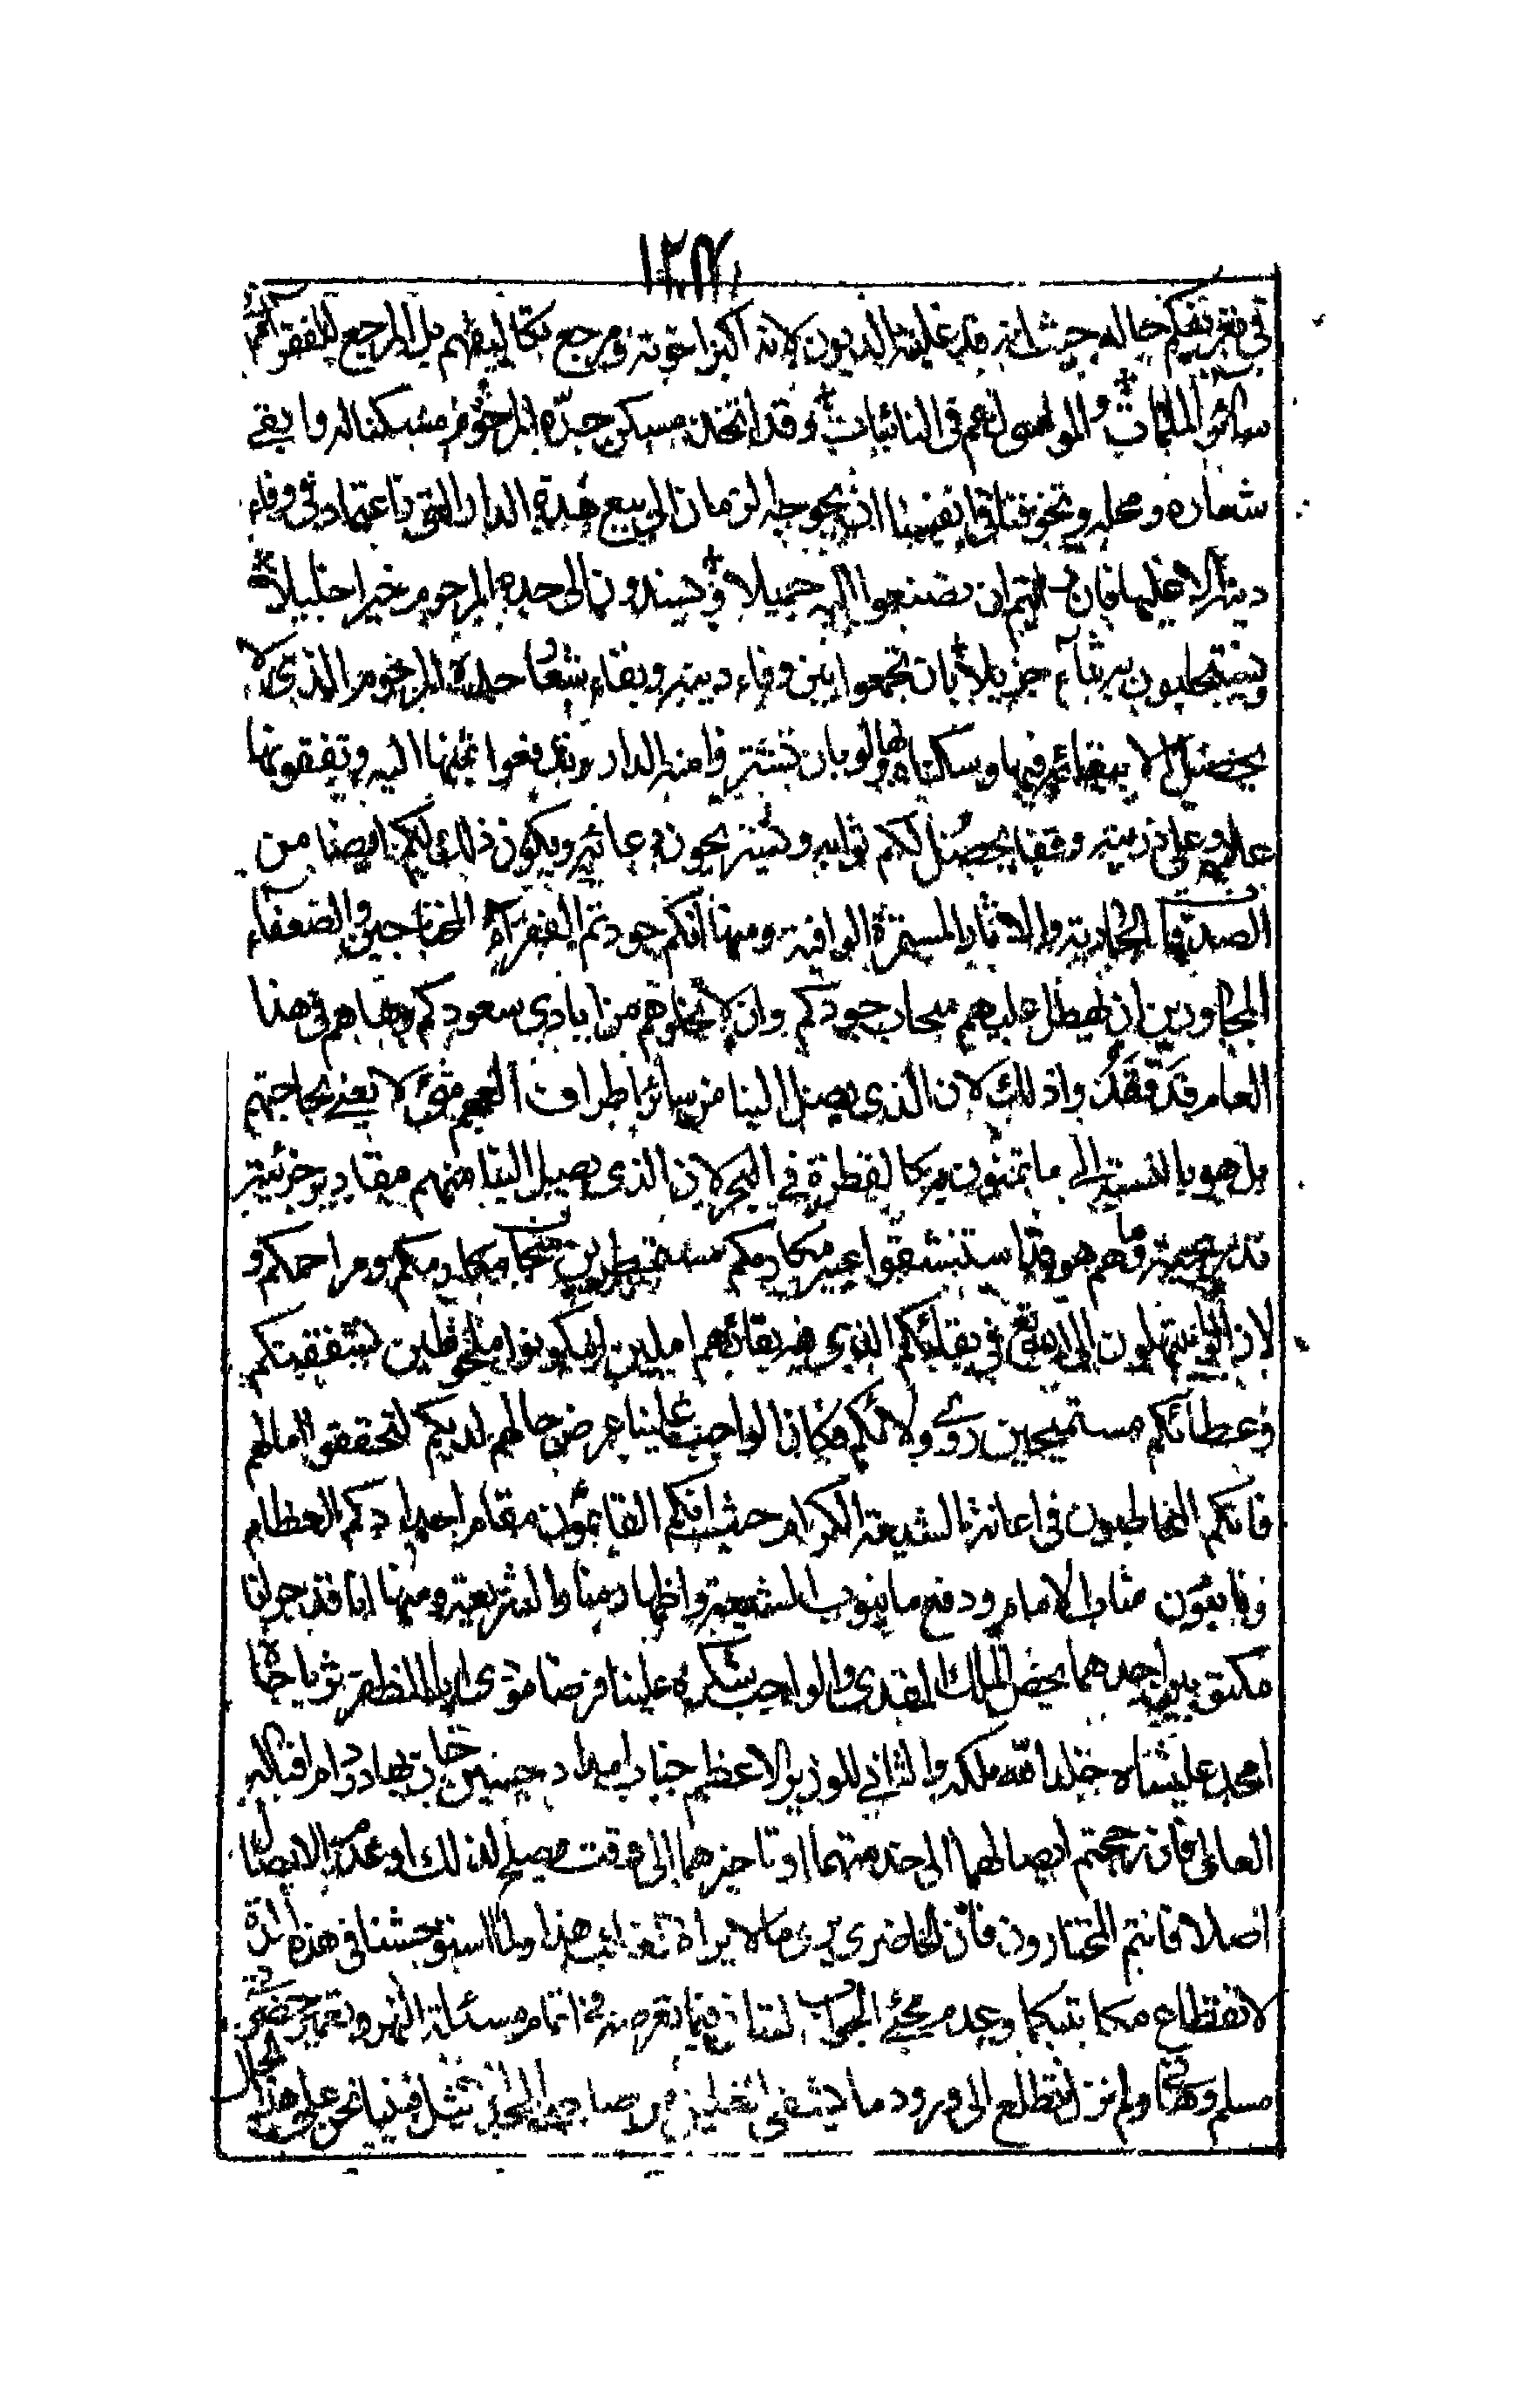 في تعريفكم حاله حيث انه قد غلبته الديون لانه اكبر اخوته ومرجع تكاليفهم بل المرجع للفقراء في
سائر الملمات والمواسي لهم في النائبات وقد اتخذ مسكن جده المرحوم مسكنا له وابقى
شعاره ومحله وتخوفنا في انفسنا ان يحوجه الزمان الى بيع هذه الدار التي اعتماده في وفاء
دينه عليها فان رايتم ان تصنعوا اليه جميلا وتسندون الى جده المرحوم خيرا جليلا
وتستجلبون به ثناء جزيلا بان تجمعوا بين وفاء دينه وبقاء شعار جده المرحوم الذي لا
يحصل الا ببقائه فيها وسكناه لها ولو بان تشتروا منه الدار وتدفعوا ثمنها اليه وتقفونها
عليه وعلى ذريته وقفا يحصل لكم ثوابه وتستريحون دعائه ويكون ذلك لكم ايضا من
الصدقات الجارية والاثار المستمرة الوافية ومنها انكم عودتم الفقراء المحتاجين والضعفاء
المجاورين ان يهطل عليهم سحاب جودكم وان لا تخلوهم من ايادي سعودكم وها هم في هذا
العام قد فقدوا ذلك لان الذي يصل الينا من سائر اطراف العجم شيء لا يفي بحاجتهم
بل هو بالنسبة الى ما تمنون به كالقطرة في البحر لان الذي يصل الينا منهم مقادير جزئية
تدريجية وها هم هو قد استنشقوا عبير مكارمكم مستمطرين سحاب مكارمكم ومراحمكم و
لا زالوا يبتهلون الى الله تعالى في بقائكم الذي فيه بقائهم املين ان يكونوا ملحوظين بشفقتكم
وعطائكم مستميحين روي ولائكم فكان الواجب علينا عرض حالهم لديكم لتحققوا امالهم
فانكم المخاطبون في اعانة الشيعة الكرام حيث انكم القائمون مقام اجدادكم العظام
ونائبون مناب الامام ودفع ما ينوب الشيعة واظهار منار الشريعة ومنها انا قد حررنا
مكتوبين احدهما يخص الملك المفدى والواجب شكره علينا فرضا مؤدى ابا المظفر ثريا جاه
امجد عليشاه خلد الله ملكه والثاني للوزير الاعظم جناب امداد حسين خان بهادر دام اقباله
العالي فان رجحتم ايصالهما الى خدمتهما او تاخيرهما الى وقت يصلح لذلك او عدم الايصال
اصلا فانتم المختارون فان الحاضر يرى ما لا يراه الغائب هذا ولما استوحشنا في هذه المدة
لانقطاع مكاتبتكم وعدم مجئ الجواب لنا فيما نعرضه في اتمام مسئلة النهر وتعمير حضرتي
مسلم وهاني ولم نزل نتطلع الى ورود ما يشفي الغليل من صاحب الخير الجزيل فبينا نحن على هذا الحال